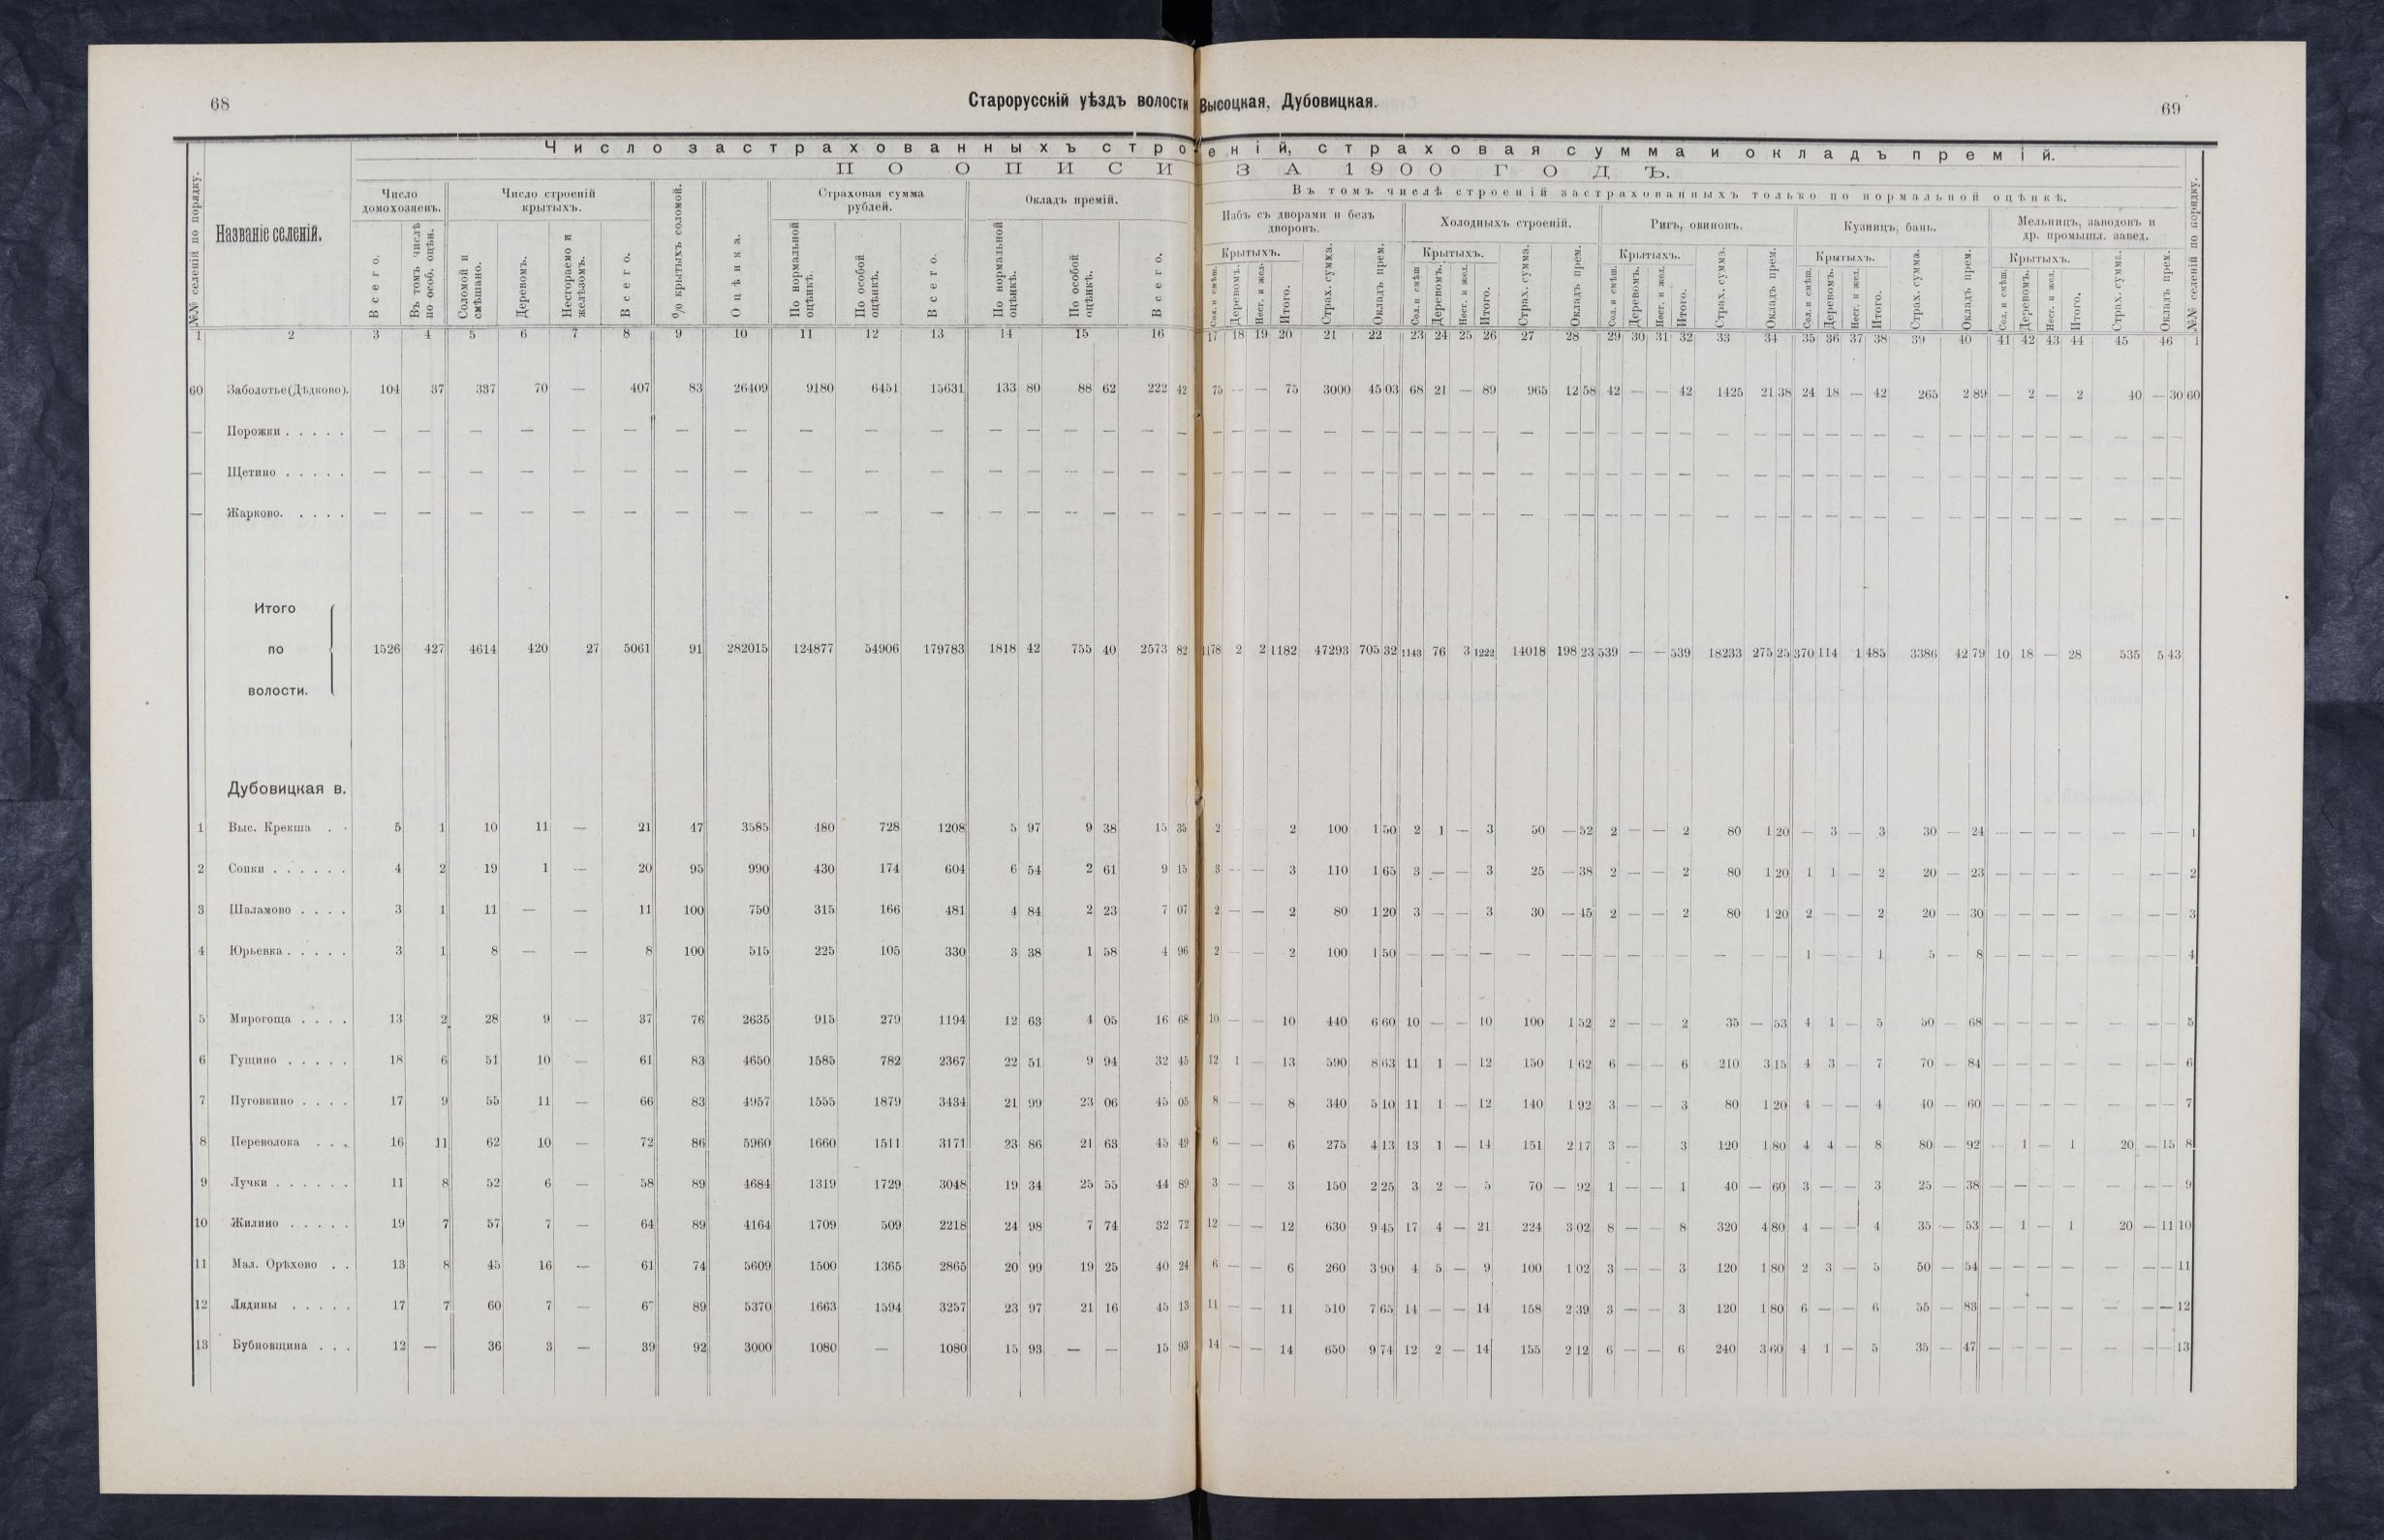 68
Старорусскій уѣздъ волости Высоцкая, Дубовицкая.
69
Число застрахованныхъ строеній, страховая сумма и окладъ премій.
ПО ОПИСИ ЗА 1900 ГОДЪ.
Въ томъ числѣ строеній застрахованныхъ только по нормальной оцѣнкѣ.
№№ селеній по порядку. Названіе селеній. Число домохозяевъ. Число строеній крытыхъ. % крытыхъ соломой. Оцѣнка. Страховая сумма рублей. Окладъ премій. Избъ съ дворами и безъ дворовъ. Холодныхъ строеній. Ригъ, овиновъ. Кузницъ, бань. Мельницъ, заводовъ и др. промышл. завед. №№ селеній по порядку.
Всего. Въ томъ числѣ по особ. оцѣн. Соломой и смѣшано. Деревомъ. Несгораемо и желѣзомъ. Всего. По нормальной оцѣнкѣ. По особой оцѣнкѣ. Всего. По нормальной оцѣнкѣ. По особой оцѣнкѣ. Всего.
Крытыхъ. Страх. сумма. Окладъ прем. Крытыхъ. Страх. сумма. Окладъ прем. Крытыхъ. Страх. сумма. Окладъ прем. Крытыхъ. Страх. сумма. Окладъ прем. Крытыхъ. Страх. сумма. Окладъ прем.
Сол. и смѣш. Деревомъ. Несг. и жел. Итого. Сол. и смѣш Деревомъ. Несг. и жел. Итого. Сол. и смѣш. Деревомъ. Несг. и жел. Итого. Сол. и смѣш. Деревомъ. Несг. и жел. Итого. Сол. и смѣш. Деревомъ. Несг. и жел. Итого.
1 2 3 4 5 6 7 8 9 10 11 12 13 14 15 16 17 18 19 20 21 22 23 24 25 26 27 28 29 30 31 32 33 34 35 36 37 38 39 40 41 42 43 44 45 46 1
60 Заболотье(Дѣдково). 104 37 337 70 — 407 83 26409 9180 6451 15631 133 80 88 62 222 42 75 — — 75 3000 45 03 68 21 — 89 965 12 58 42 — — 42 1425 21 38 24 18 — 42 265 2 89 — 2 — 2 40 — 30 60
— Порожки . . . . . — — — — — — — — — — — — — — — — — — — — — — — — — — — — — — — — — — — — — — — — — — — — — — — — — — —
— Щетино . . . . . — — — — — — — — — — — — — — — — — — — — — — — — — — — — — — — — — — — — — — — — — — — — — — — — — — —
— Жарково. . . . . — — — — — — — — — — — — — — — — — — — — — — — — — — — — — — — — — — — — — — — — — — — — — — — — — — —
Итого
по 1526 427 4614 420 27 5061 91 282015 124877 54906 179783 1818 42 755 40 2573 82 1178 2 2 1182 47293 705 32 1143 76 3 1222 14018 198 23 539 — — 539 18233 275 25 370 114 1 485 3386 42 79 10 18 — 28 535 5 43
волости.
Дубовицкая в.
1 Выс. Крекша . . 5 1 10 11 — 21 47 3585 480 728 1208 5 97 9 38 15 35 2 2 100 1 50 2 1 — 3 50 — 52 2 — — 2 80 1 20 — 3 — 3 30 — 24 — — — — — — — 1
2 Сопки . . . . . . 4 2 19 1 — 20 95 990 430 174 604 6 54 2 61 9 15 3 — — 3 110 1 65 3 — — 3 25 — 38 2 — — 2 80 1 20 1 1 — 2 20 — 23 — — — — — — — 2
3 Шаламово . . . . 3 1 11 — — 11 100 750 315 166 481 4 84 2 23 7 07 2 — — 2 80 1 20 3 — — 3 30 — 45 2 — — 2 80 1 20 2 — — 2 20 — 30 — — — — — — — 3
4 Юрьевка . . . . . 3 1 8 — — 8 100 515 225 105 330 3 38 1 58 4 96 2 — — 2 100 1 50 — — — — — — — — — — — — — — 1 — — 1 5 — 8 — — — — — — — 4
5 Мирогоща . . . . 13 2 28 9 — 37 76 2635 915 279 1194 12 63 4 05 16 68 10 — — 10 440 6 60 10 — — 10 100 1 52 2 — — 2 35 — 53 4 1 — 5 50 — 68 — — — — — — — 5
6 Гущино . . . . . 18 6 51 10 — 61 83 4650 1585 782 2367 22 51 9 94 32 45 12 1 — 13 590 8 63 11 1 — 12 150 1 62 6 — — 6 210 3 15 4 3 — 7 70 — 84 — — — — — — — 6
7 Пуговкино . . . . 17 9 55 11 — 66 83 4957 1555 1879 3434 21 99 23 06 45 05 8 — — 8 340 5 10 11 1 — 12 140 1 92 3 — — 3 80 1 20 4 — — 4 40 — 60 — — — — — — — 7
8 Переволока . . . 16 11 62 10 — 72 86 5960 1660 1511 3171 23 86 21 63 45 49 6 — — 6 275 4 13 13 1 — 14 151 2 17 3 — 3 120 1 80 4 4 — 8 80 — 92 — 1 — 1 20 — 15 8
9 Лучки . . . . . . 11 8 52 6 — 58 89 4684 1319 1729 3048 19 34 25 55 44 89 3 — — 3 150 2 25 3 2 — 5 70 — 92 1 — — 1 40 — 60 3 — — 3 25 — 38 — — — — — — — 9
10 Жилино . . . . . 19 7 57 7 — 64 89 4164 1709 509 2218 24 98 7 74 32 72 12 — — 12 630 9 45 17 4 — 21 224 3 02 8 — — 8 320 4 80 4 — — 4 35 — 53 — 1 — 1 20 — 11 10
11 Мал. Орѣхово . . 13 8 45 16 — 61 74 5609 1500 1365 2865 20 99 19 25 40 24 6 — — 6 260 3 90 4 5 — 9 100 1 02 3 — — 3 120 1 80 2 3 — 5 50 — 54 — — — — — — — 11
12 Лядины . . . . . 17 7 60 7 — 67 89 5370 1663 1594 3257 23 97 21 16 45 13 11 — — 11 510 7 65 14 — — 14 158 2 39 3 — — 3 120 1 80 6 — — 6 55 — 83 — — — — — — — 12
13 Бубновщина . . . 12 — 36 3 — 39 92 3000 1080 — 1080 15 93 — — 15 93 14 — — 14 650 9 74 12 2 — 14 155 2 12 6 — — 6 240 3 60 4 1 — 5 35 — 47 — — — — — — — 13